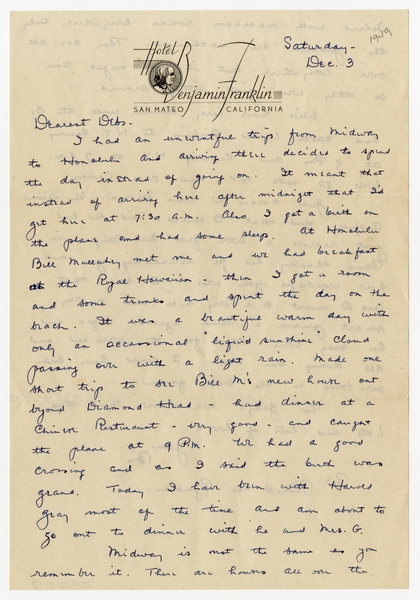 Hotel
Benjamin Franklin
SAN MATEO CALIFORNIA
Saturday-
Dec. 3
1949
Dearest Debs-
I had an uneventful trip from Midway
to Honolulu and arriving there decided to spend
the day instead of going on. It meant that
instead of arriving here after midnight that I'd
get here at 7:30 a.m. Also I got a birth on
the plane and had some sleep. At Honolulu
Bill Mullahey met me and we had breakfast
at the Royal Hawaiian - then I got a room
and some trunks and spent the day on the
beach. It was a beautiful warm day with
only an occassional "liquid sunshine" cloud
passing over with a light rain. Made one
short trip to see Bill M's new house out
byond Diamond Head - had dinner at a
Chinese Restaurant - very good - and caught
the plane at 9 P.M. We had a good
crossing and as I said the birth was
grand. Today I have been with Harold
Gray most of the time and am about to
go out to dinner with he and Mrs. G.
Midway is not the same as you
remember it. There are houses all over the